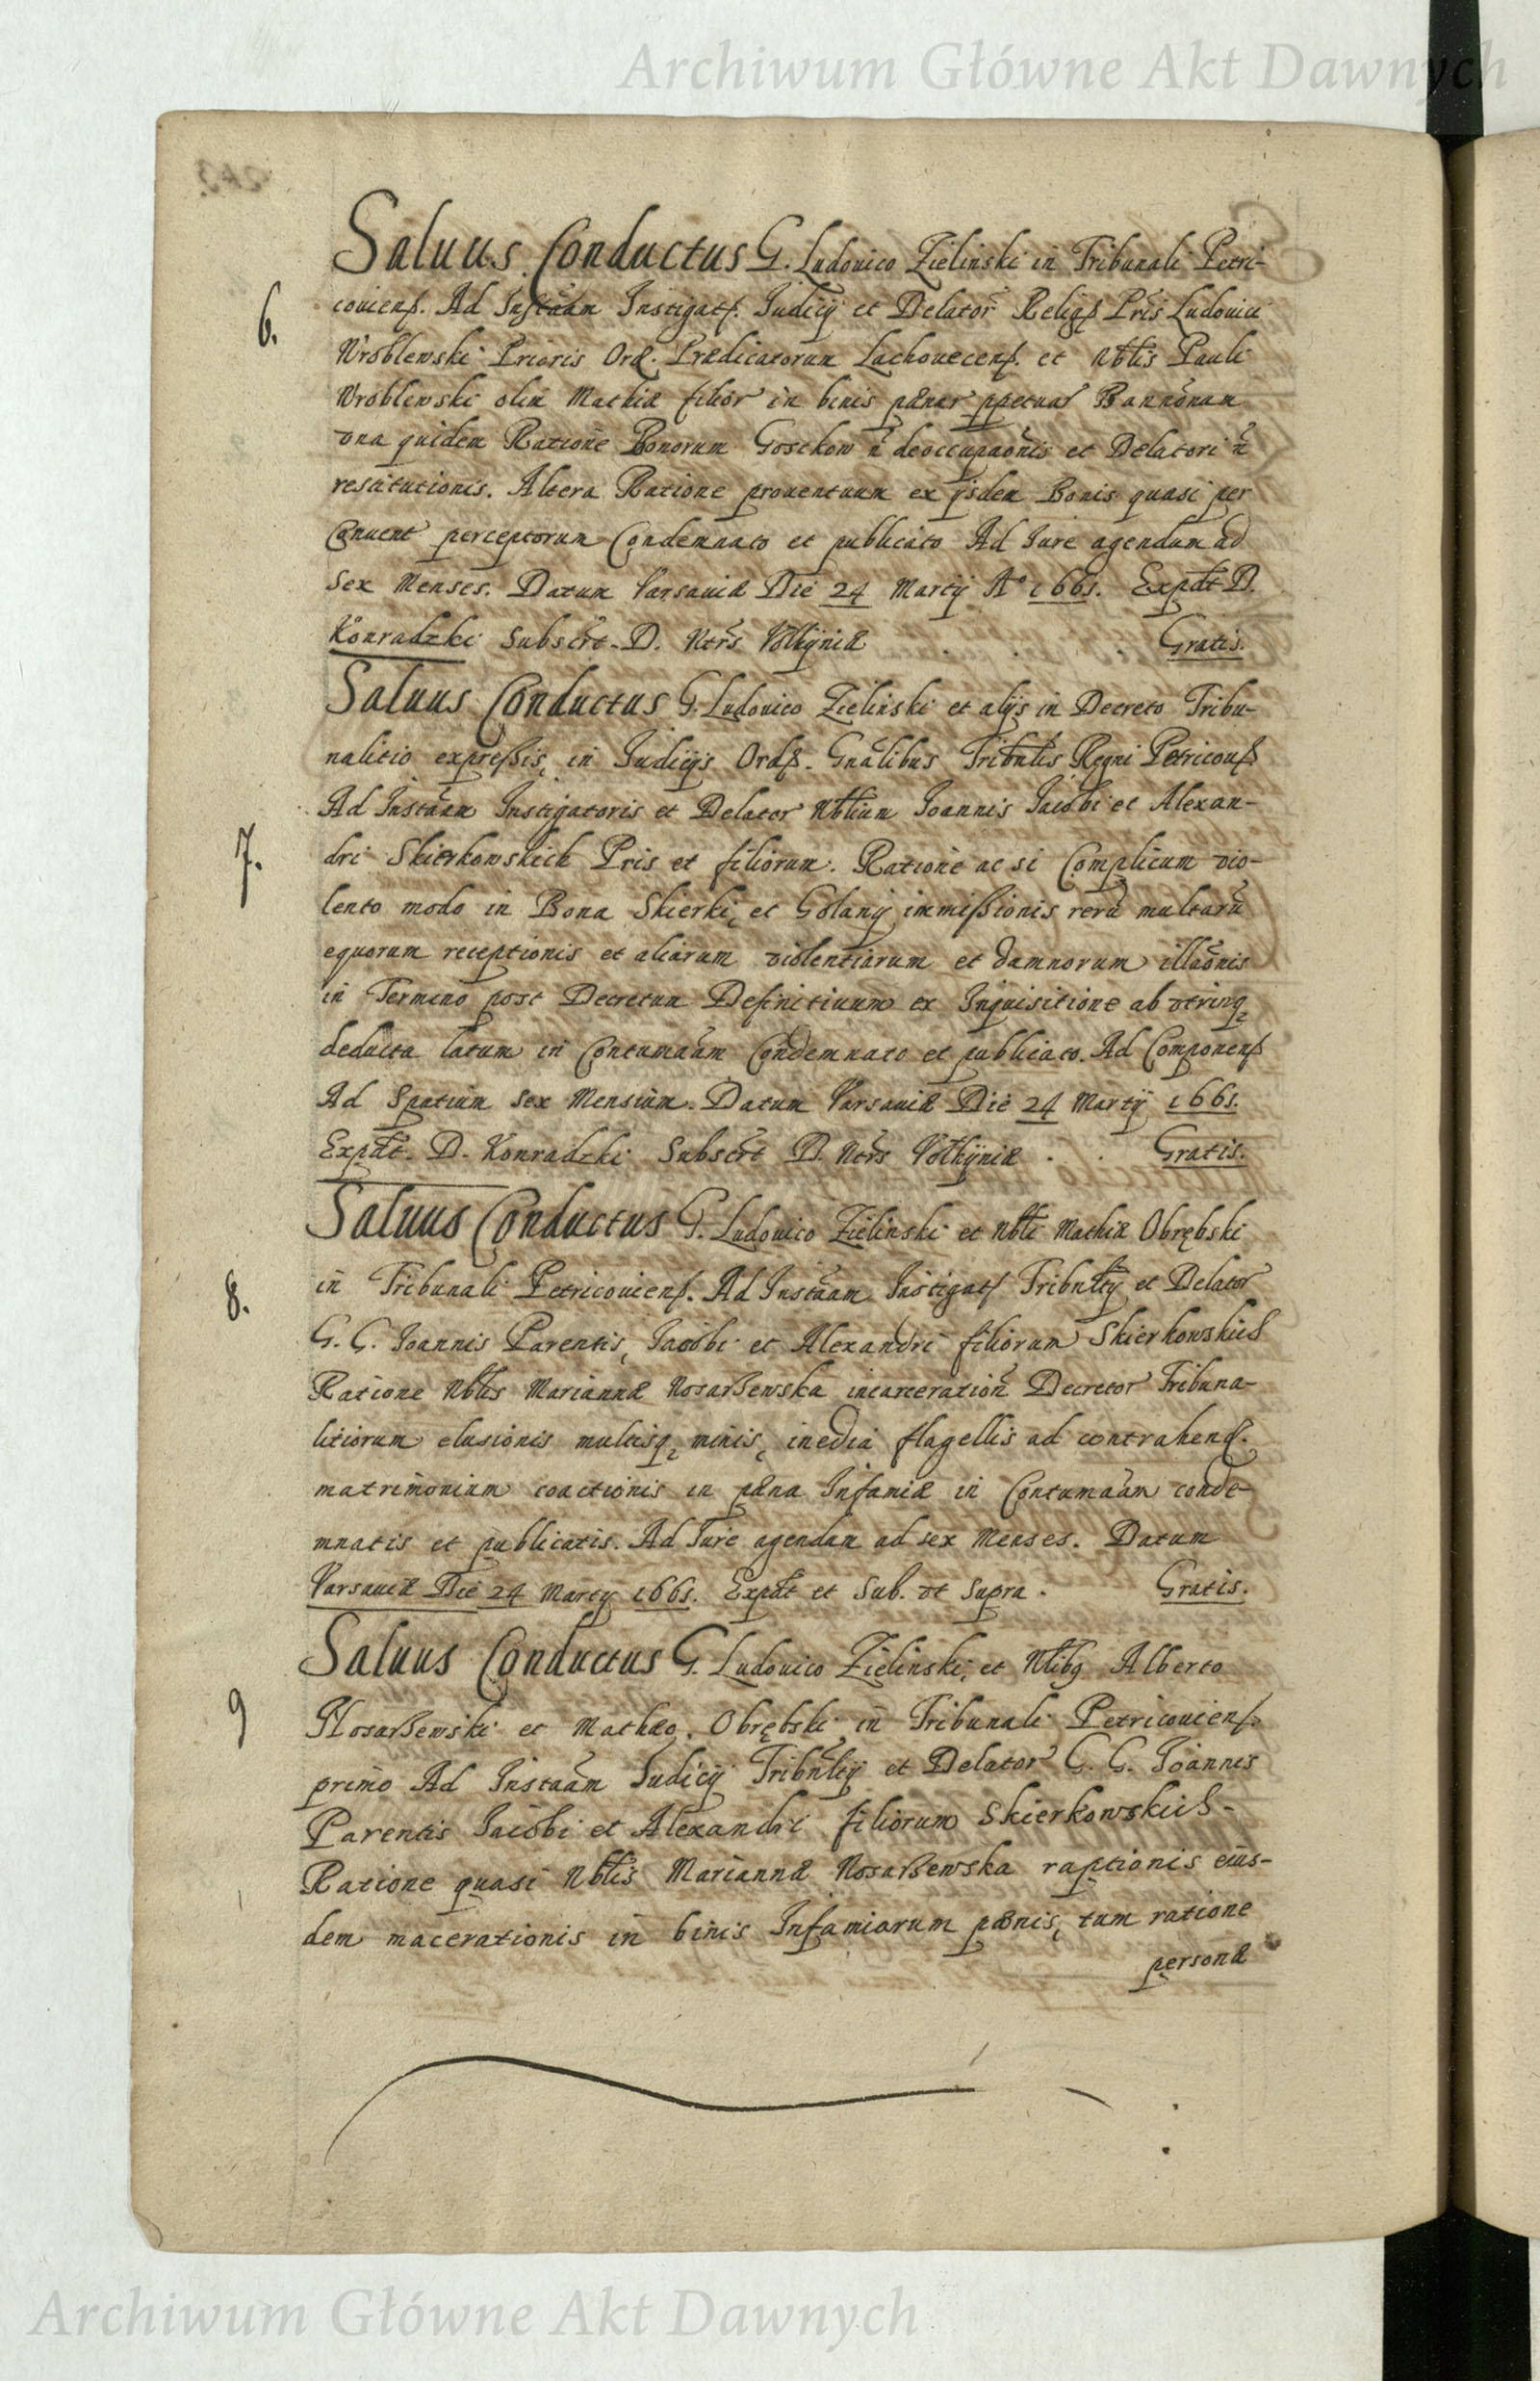 Archiwum Główne Akt Dawnych
Saluus Conductus G. Ludouico Zielinski in Tribunali Petri-
6. couiens. Ad Instãam Instigats. Iudicij et Delator Religs Pris Ludouici
Wroblewski Prioris Ord. Prædicatorum Lachouecens. et Nbtis Pauli
Wroblewski olim Mathiæ filior in binis pænar ppetuar Bannonam
vna quidem Ratione Bonorum Gosckow ñ deoccupaõnis et Delatori ñ
restitutionis. Altera Ratione prouentuum ex ijsdem Bonis quasi per
Conuent perceptorum Condemnato et publicato Ad Iure agendum ad
sex Menses. Datum Varsauiæ Die 24 Martij Aº 1661. Expdt D.
Konradzki Subscrt. D. Ntrs Volhyniæ . . . Gratis.
Saluus Conductus G. Ludouico Zielinski et alijs in Decreto Tribu-
nalitio expressis, in Iudicijs Ords. Gnalibus Tribnlis Regni Petricous
Ad Instãam Instigatoris et Delator Nbtium Ioannis Iacobi et Alexan-
7. dri Skierkowskich Pris et filiorum. Ratione ac si Complicum vio-
lento modo in Bona Skierki, et Golany immissionis rerũ multarũ
equorum receptionis et aliarum violentiarum et damnorum illaõnis
in Termino post Decretum Definitiuum ex Inquisitione ab vtrinq,
deducta latum in Contumaãm Condemnato et publicato. Ad Componens
Ad Spatium sex Mensium. Datum Varsauiæ Die 24 Martij 1661.
Expdt. D. Konradzki Subscrt D. Ntrs Volhyniæ . . Gratis.
Saluus Conductus G. Ludouico Zielinski et Nbli Mathiæ Obrębski
8. in Tribunali Petricouiens. Ad Instãam Instigats Tribnltij et Delator
G. G. Ioannis Parentis, Iacobi et Alexandri filiorum Skierkowskich
Ratione Nbtis Mariannæ Nosarßewska incarceration Decretor Tribuna-
litiorum elusionis multisq, minis, inedia flagellis ad contrahend.
matrimonium coactionis in pæna Infamiæ in Contumaãm conde-
mnatis et publicatis. Ad Iure agendum ad sex Menses. Datum
Varsauiæ Die 24 Martij 1661. Expdt et Sub. vt supra. Gratis.
Saluus Conductus G. Ludouico Zielinski, et Nlibg Alberto
9 Nosarßewski et Mathæo. Obrębski in Tribunali Petricouiens.
primo Ad Instãam Iudicij Tribnltij et Delator G. G. Ioannis
Parentis Iacobi et Alexandri filiorum Skierkowskich-
Ratione quasi Nbtis Mariannæ Nosarßewska raptionis eius-
dem macerationis in binis Infamiarum pænis, tum ratione
personæ
Archiwum Główne Akt Dawnych